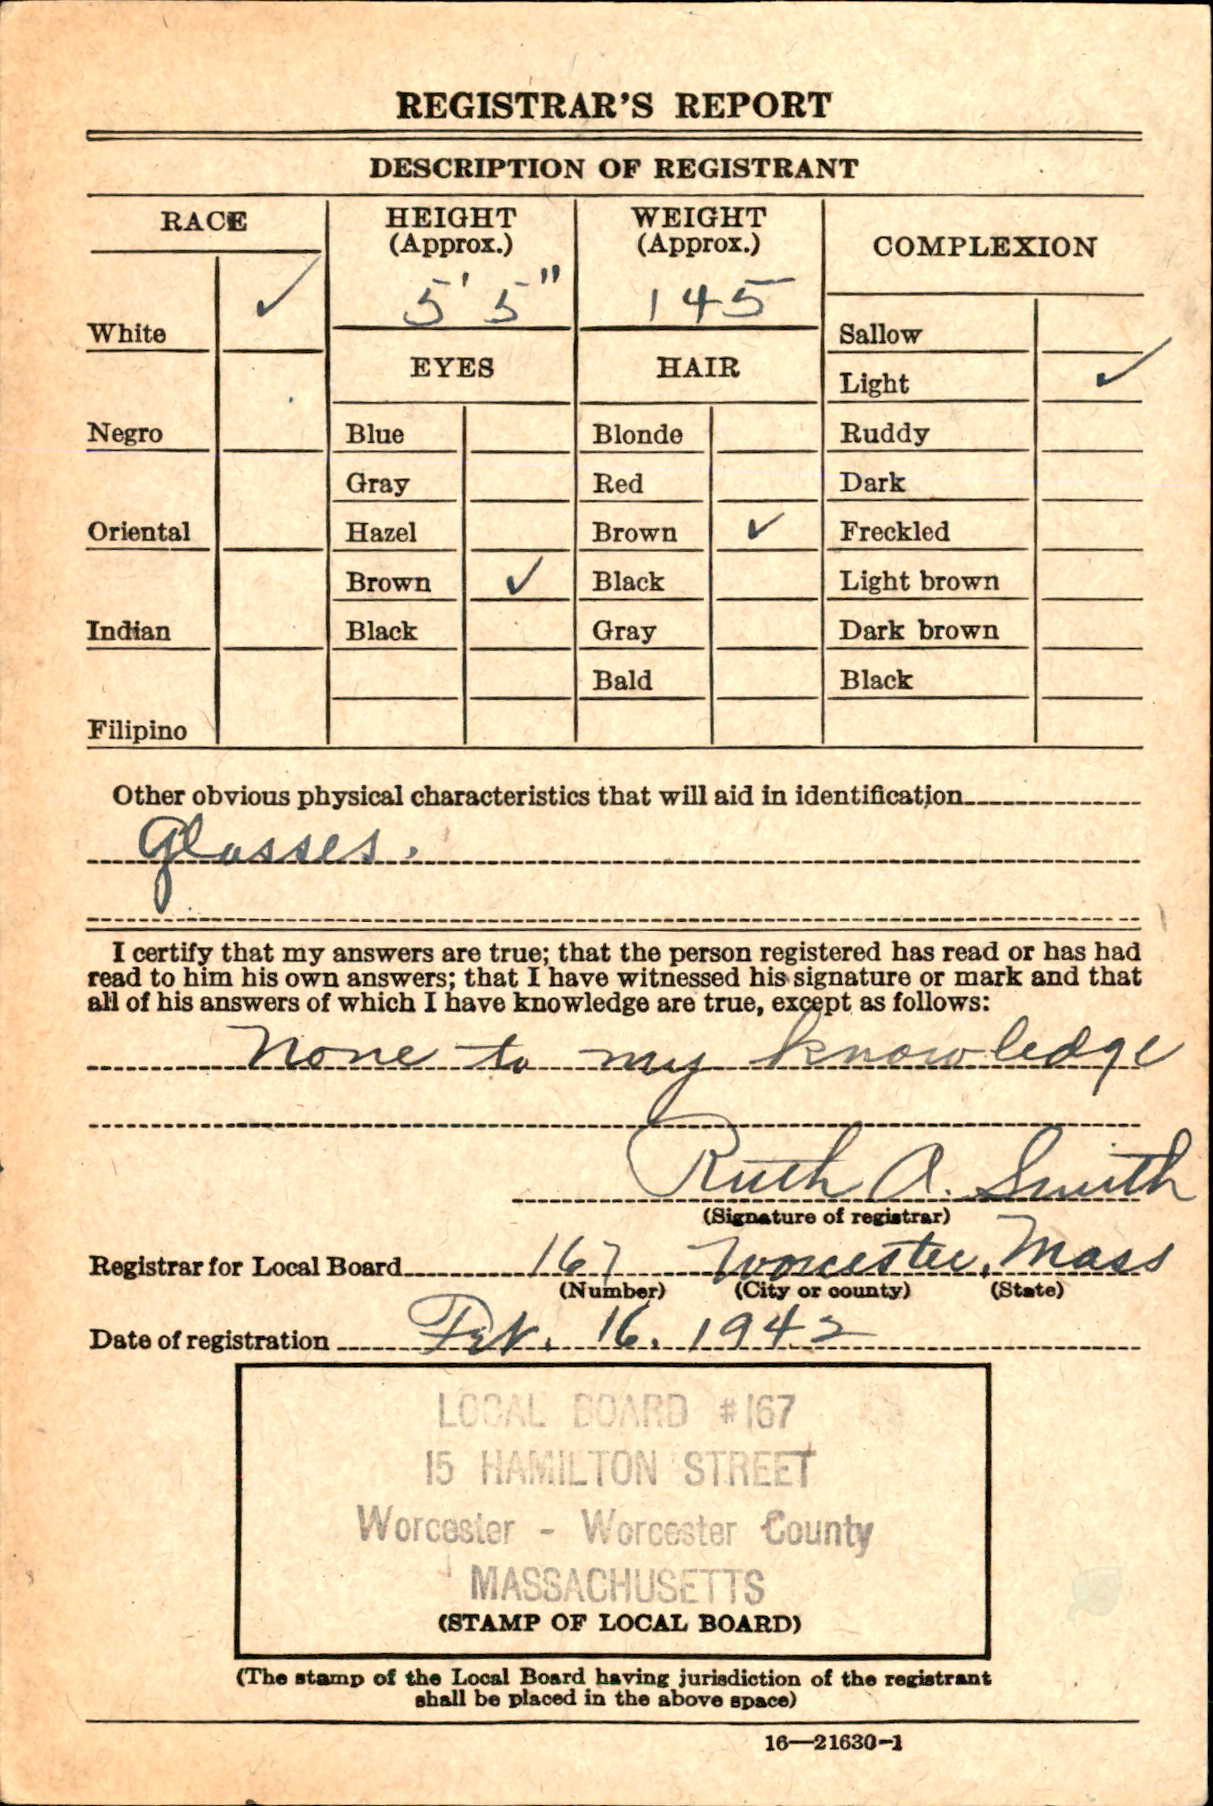 REGISTRAR'S REPORT
DESCRIPTION OF REGISTRANT
RACE
HEIGHT
(Approx.)
WEIGHT
(Approx.)
COMPLEXION
5' 5"
145
White ✓
Sallow
EYES
HAIR
Light ✓
Negro
Blue
Blonde
Ruddy
Gray
Red
Dark
Oriental
Hazel
Brown ✓
Freckled
Brown ✓
Black
Light brown
Indian
Black
Gray
Dark brown
Bald
Black
Filipino
Other obvious physical characteristics that will aid in identification
Glasses.
I certify that my answers are true; that the person registered has read or has had
read to him his own answers; that I have witnessed his signature or mark and that
all of his answers of which I have knowledge are true, except as follows:
None to my knowledge
Ruth A. Smith
(Signature of registrar)
Registrar for Local Board 167 Worcester, Mass
(Number) (City or county) (State)
Date of registration Feb. 16, 1942
LOCAL BOARD #167
15 HAMILTON STREET
Worcester - Worcester County
MASSACHUSETTS
(STAMP OF LOCAL BOARD)
(The stamp of the Local Board having jurisdiction of the registrant
shall be placed in the above space)
16—21630-1